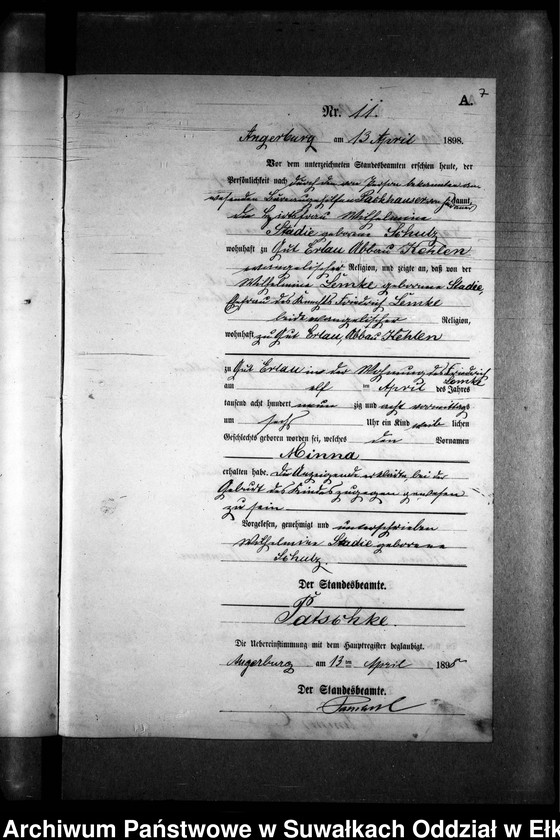 7
A.
Nr. 11.
Angerburg am 13 April 1898.
Vor dem unterzeichneten Standesbeamten erschien heute, der
Persönlichkeit nach durch den von Person bekannten an-
wesenden Packhauser
kannt,
die Wilhelmine
Stadie geborene Schulz
wohnhaft zu Gut Erlau Abbau Kehlen
evangelischer Religion, und zeigte an, daß von der
Wilhelmine Lemke geborene Stadie,
Ehefrau des Knechts Friedrich Lemke
beide evangelischer Religion,
wohnhaft zu Gut Erlau, Abbau Kehlen
zu Gut Erlau in der Wohnung des Friedrich
Lemke
am elf ten April des Jahres
tausend acht hundert neun zig und acht vormittags
um sechs Uhr ein Kind weib lichen
Geschlechts geboren worden sei, welches den Vornamen
Minna
erhalten habe. Die Anzeigende erklärte, bei der
Geburt des Kindes zugegen gewesen
zu sein
Vorgelesen, genehmigt und unterschrieben
Wilhelmine Stadie geborene
Schulz
Der Standesbeamte.
Patschke.
Die Uebereinstimmung mit dem Hauptregister beglaubigt.
Angerburg am 13ten April 1898
Der Standesbeamte.
Archiwum Państwowe w Suwałkach Oddział w Ełk